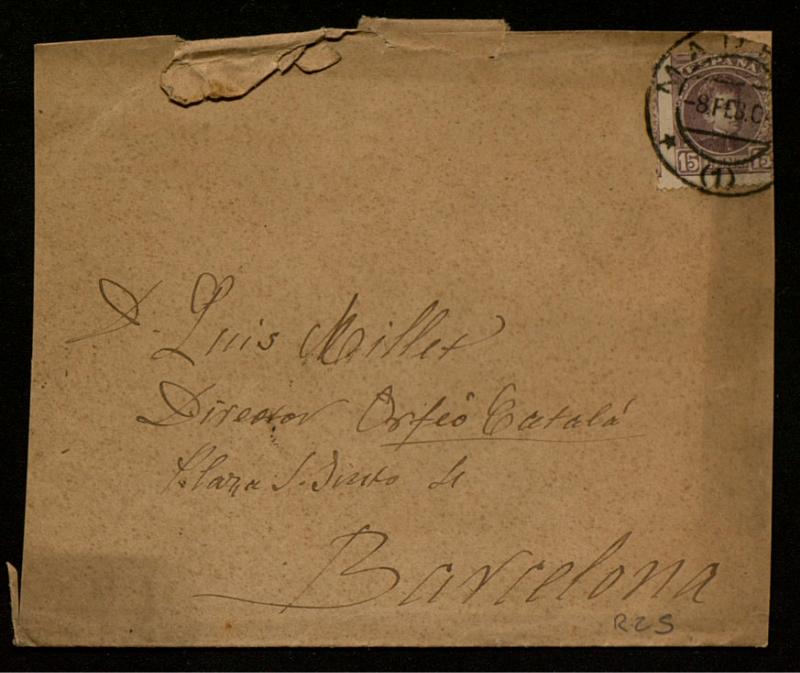 MADR
-8.FEB.0
(1)
ESPAÑA
15 15
D. Luis Millet
Director Orfeó Catalá
Plaza S. Justo 4
Barcelona
R25